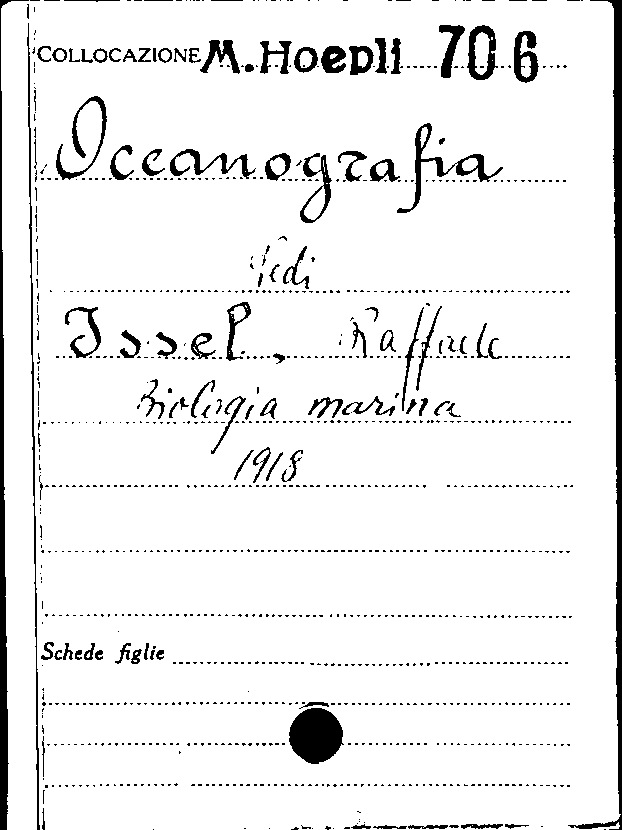 COLLOCAZIONE M. Hoepli 706
Oceanografia
Vedi
Issel, Raffaele
Biologia marina
1918
Schede figlie